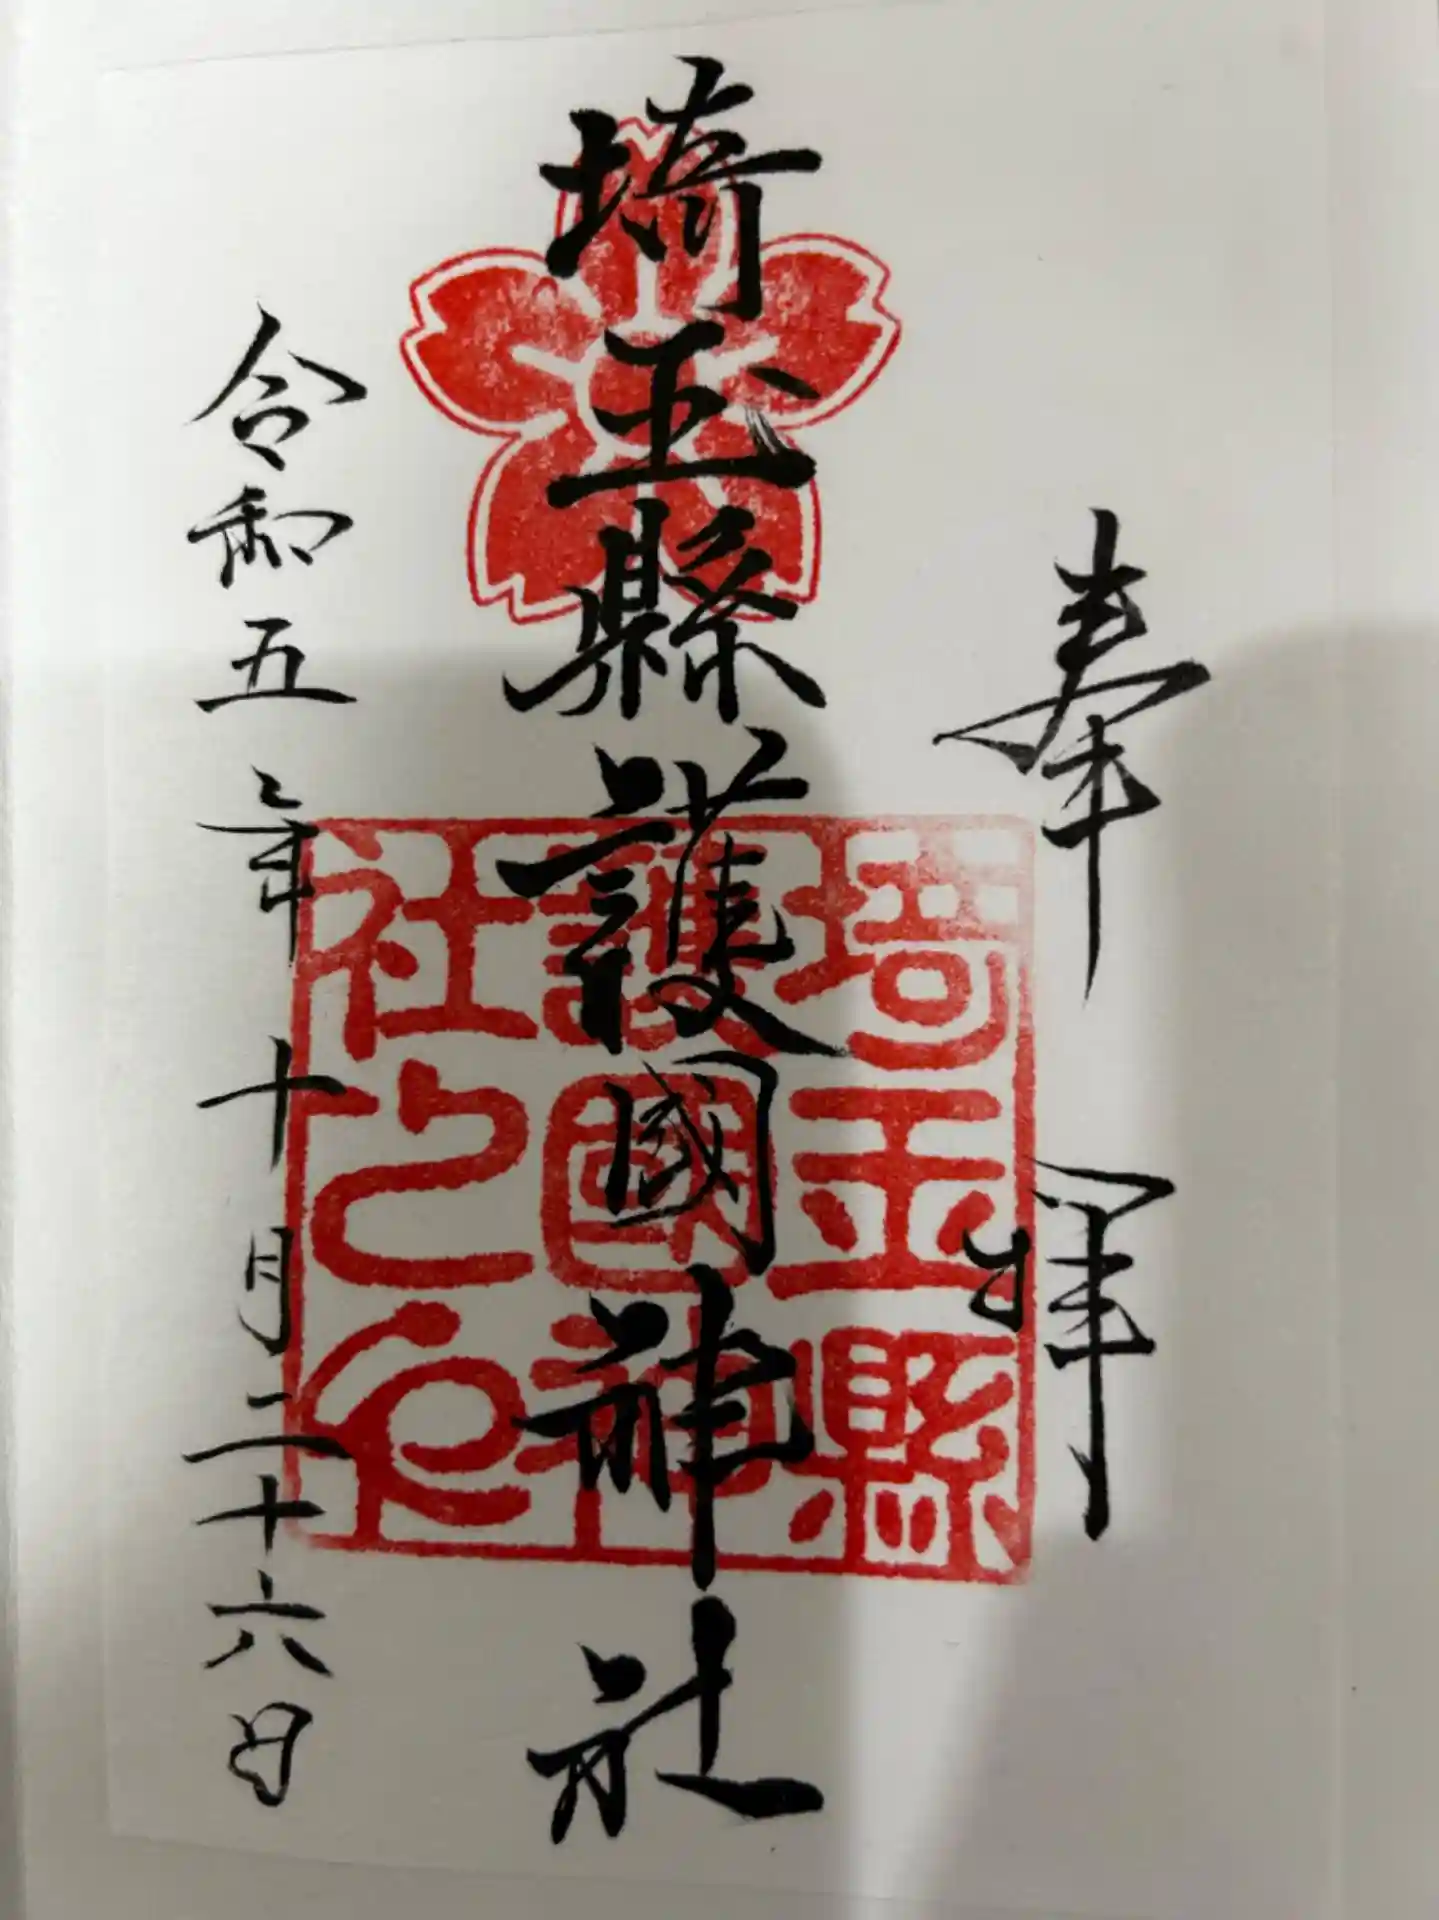 奉拝
埼玉縣護國神社
令和五年十月二十六日
埼玉縣
護國神
社之印